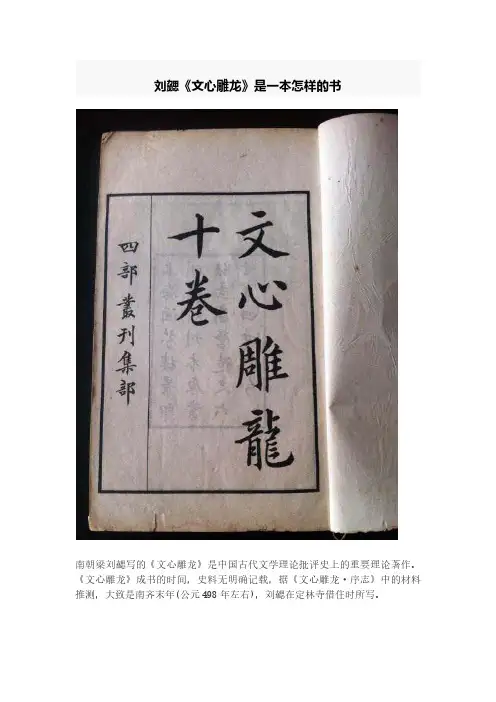 刘勰《文心雕龙》是一本怎样的书
文心雕龍
十卷
四部叢刊集部
南朝梁刘勰写的《文心雕龙》是中国古代文学理论批评史上的重要理论著作。
《文心雕龙》成书的时间，史料无明确记载，据《文心雕龙·序志》中的材料
推测，大致是南齐末年(公元 498 年左右)，刘勰在定林寺借住时所写。